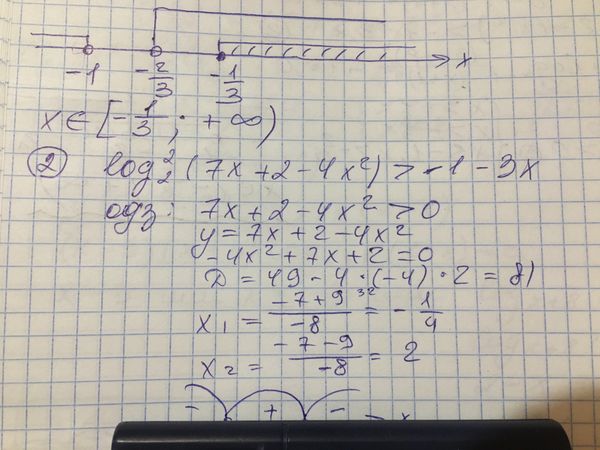 -1 -2/3 -1/3 x
x ∈ [-1/3; +∞)
② log₂² (7x + 2 - 4x²) > -1 - 3x
одз: 7x + 2 - 4x² > 0
y = 7x + 2 - 4x²
-4x² + 7x + 2 = 0
D = 49 - 4·(-4)·2 = 81
32
x₁ = (-7+9)/(-8) = -1/4
x₂ = (-7-9)/(-8) = 2
- + - x